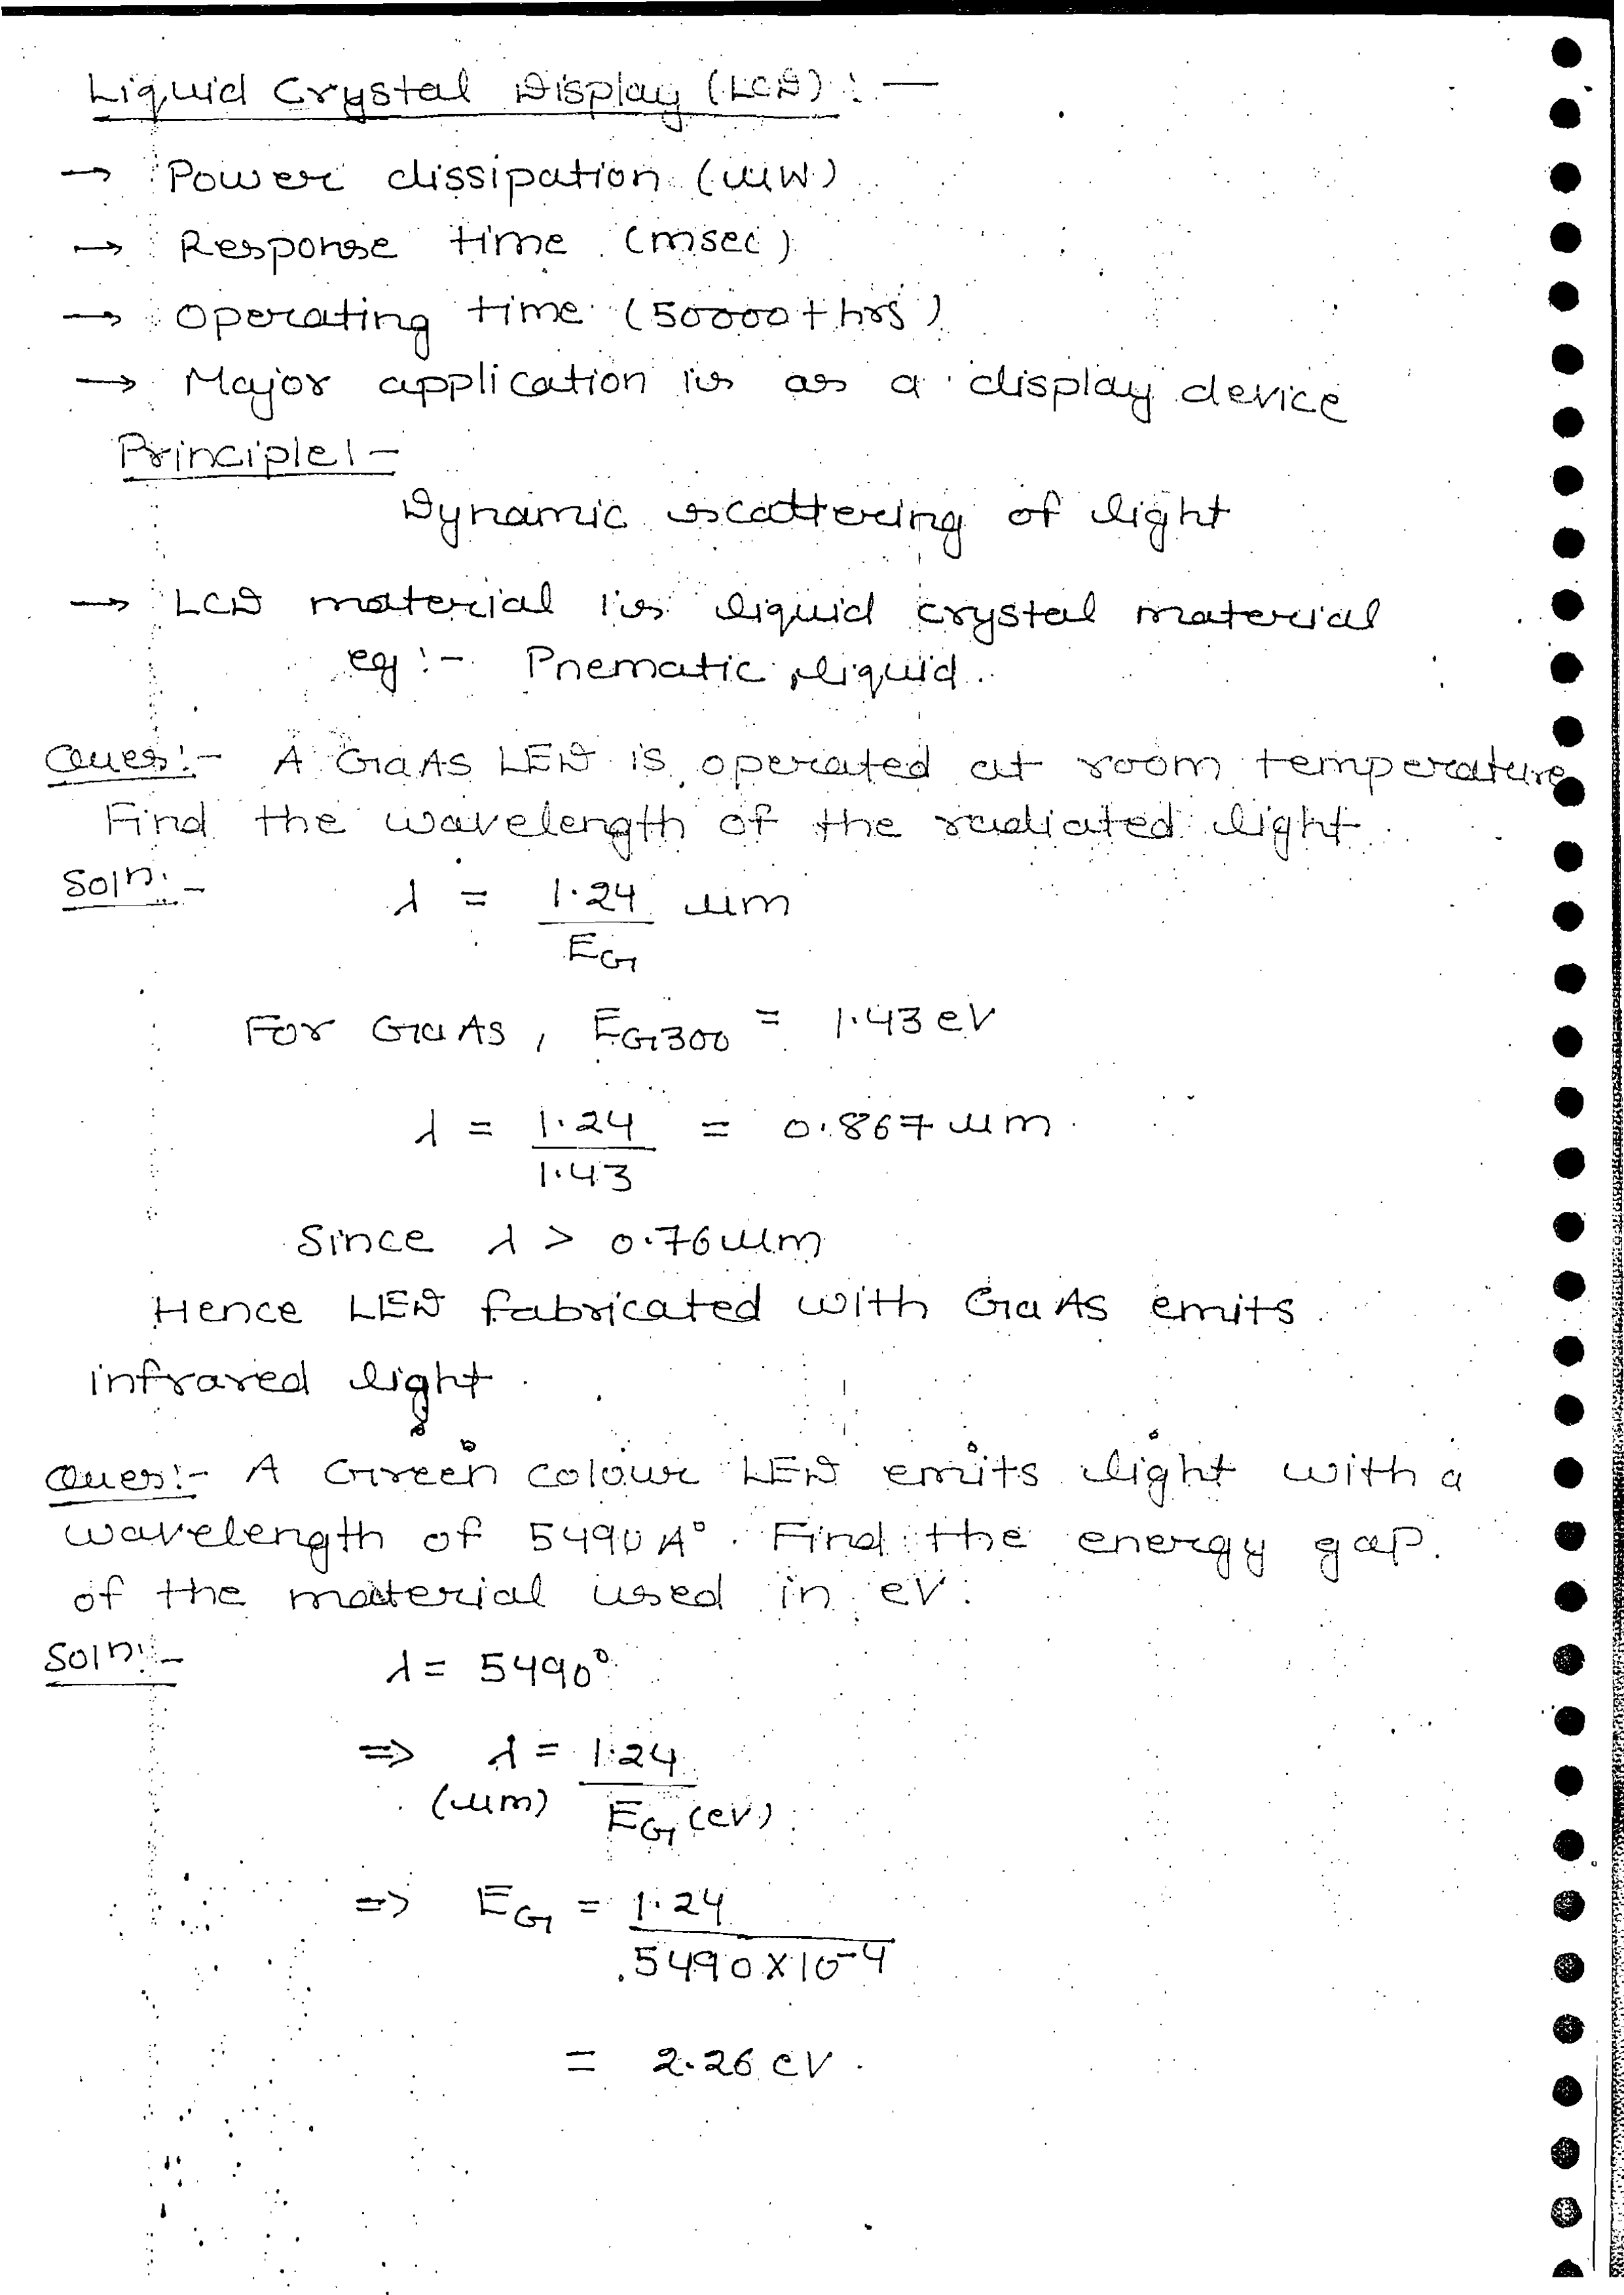 Liquid Crystal Display (LCD) : —
→ Power dissipation (μW)
→ Response time (msec)
→ Operating time (50000+ hrs)
→ Major application is as a display device
Principle! -
Dynamic scattering of light
→ LCD material is liquid crystal material
eg :- Pnematic liquid.
Ques:- A GaAs LED is operated at room temperature
Find the wavelength of the radiated light.
Soln:-
λ = 1.24 / EG μm
For GaAs, EG300 = 1.43 eV
λ = 1.24 / 1.43 = 0.867 μm.
Since λ > 0.76 μm
Hence LED fabricated with GaAs emits
infrared light.
Ques:- A Green colour LED emits light with a
wavelength of 5490 A°. Find the energy gap.
of the material used in eV.
Soln:- λ = 5490°
⇒ λ (μm) = 1.24 / EG (eV)
⇒ EG = 1.24 / 5490 × 10⁻⁴
= 2.26 eV.